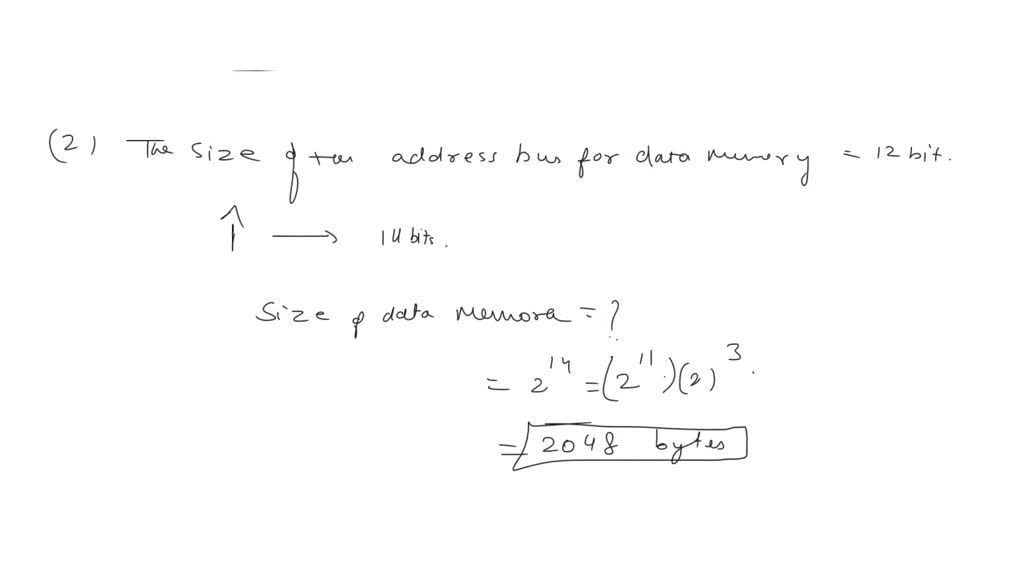 (2) The size of the address bus for data memory = 12 bit.
↑ → 14 bits.
Size of data memora = ?
= 2^14 = (2^11)(2)^3.
= 2048 bytes